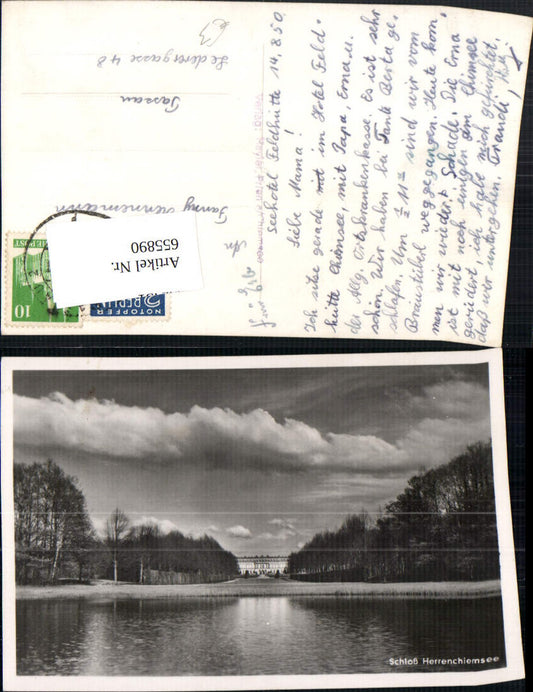 Seehotel Feldhütte 14.8.50
Liebe Mama!
Ich sitze gerade im Hotel Feld-
hütte Chiemsee, mit Papa, Erna u.
der Allg. Ortskrankenkasse. Es ist sehr
schön. Wir haben bei Tante Berta ge-
schlafen. Um ½ 11 sind wir vom
Bräustüberl weggegangen. Heute kom-
men wir wieder. Schade. Die Erna
ist mit noch einigen am Chiemsee
gerudert, ich habe mich gefürchtet,
daß wir untergehen. Traudi,
An
Fanny
Passau
Ledérergasse 48
Artikel Nr.
655890
10
NOTOPFER
2 BERLIN
Schloß Herrenchiemsee